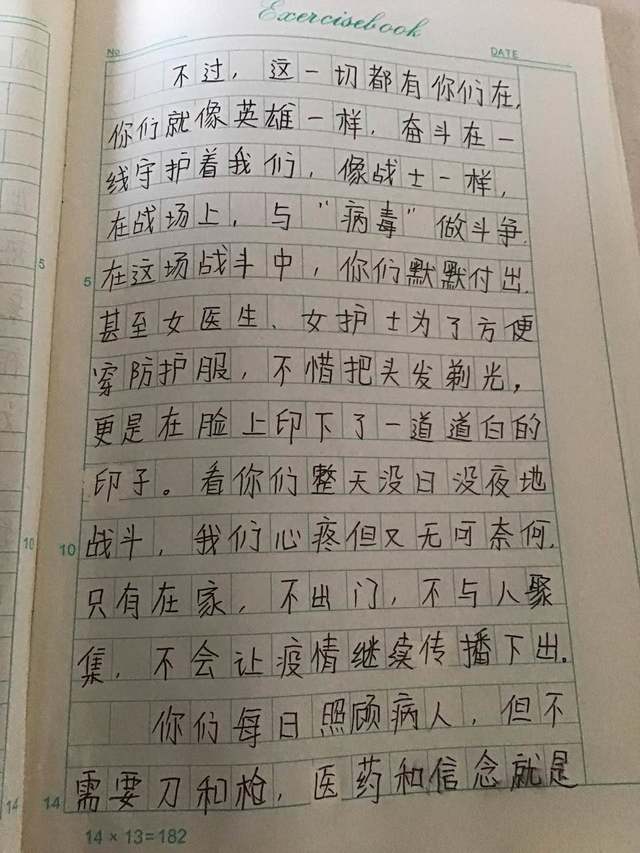 Exercisebook
No.
DATE
不过，这一切都有你们在，
你们就像英雄一样，奋斗在一
线守护着我们，像战士一样，
在战场上，与"病毒"做斗争，
5
5
在这场战斗中，你们默默付出，
甚至女医生、女护士为了方便
穿防护服，不惜把头发剃光，
更是在脸上印下了一道道白的
印子。看你们整天没日没夜地
10
10
战斗，我们心疼但又无可奈何，
只有在家，不出门，不与人聚
集，不会让疫情继续传播下出。
你们每日照顾病人，但不
14
14
需要刀和枪，医药和信念就是
14×13=182